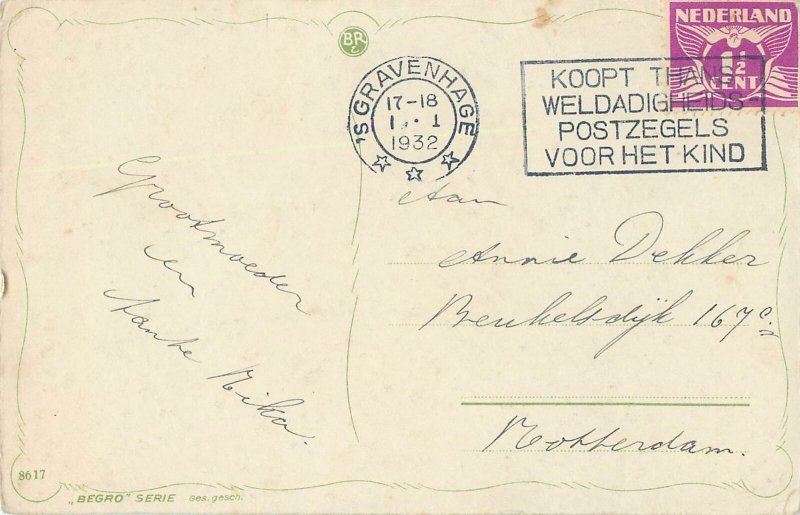 BR
NEDERLAND
1½
CENT
'S GRAVENHAGE
17-18
1 1
1932
KOOPT THANS
WELDADIGHEIDS-
POSTZEGELS
VOOR HET KIND
Grootmoeder
en
tante Rika.
Aan
Annie Dekker
Beukelsdijk 167c
Rotterdam.
8617
„BEGRO" SERIE Ges. gesch.